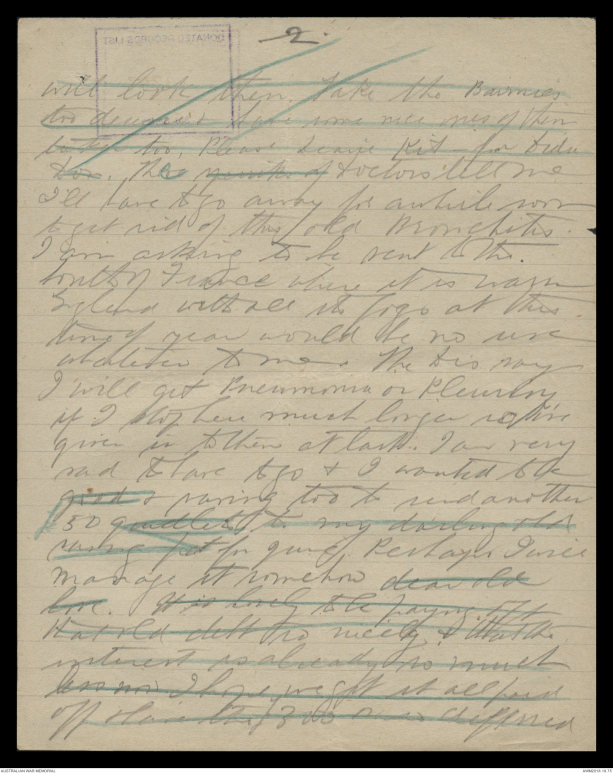 2.
will look then. Take the
too
too Please leave Kit for
Dos. The Doctors tell me
I'll have to go away for awhile soon
to get rid of this old Bronchitis.
I am asking to be sent to the
South of France where it is warm
England with all its fogs at this
time of year would be no use
whatever to me. The Drs say
I will get Pneumonia or Pleurisy
if I stop here much longer so I've
given in to them at last. I am very
sad to have to go & I wanted to be
good & saving too to send another
50 to my darling old
for June. Perhaps I will
manage it somehow dear old
love. It is lovely to be paying off
that old debt so nicely & that the
interest is already so much
less now I hope we get it all paid
off
AUSTRALIAN WAR MEMORIAL